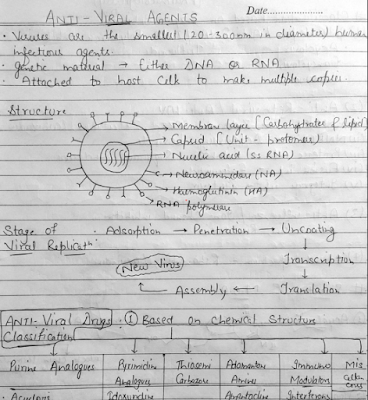 ANTI-VIRAL AGENTS
Date
• Viruses are the smallest (20-300nm in diameter) human
infectious agents.
• genetic material → Either DNA or RNA
• Attached to host Cell to make multiple copies.
Structure
Membrane layer [Carbohydrates & lipid]
Capsid [Unit - protomer]
Nucleic acid (ss RNA)
Neuraminidase (NA)
Haemoglutinin (HA)
RNA polymerase
Stage of
Viral Replicatn:
Adsorption → Penetration → Uncoating
Transcription
Translation
Assembly
New Virus
ANTI-Viral Drugs : ① Based on chemical Structure
Classification
Purine Analogues
Pyrimidine
Analogues
Idoxuridine
Thiosemi
Carbazone
Adamantane
Amines
Amantadine
Immuno
Modulators
Interferons
Mis